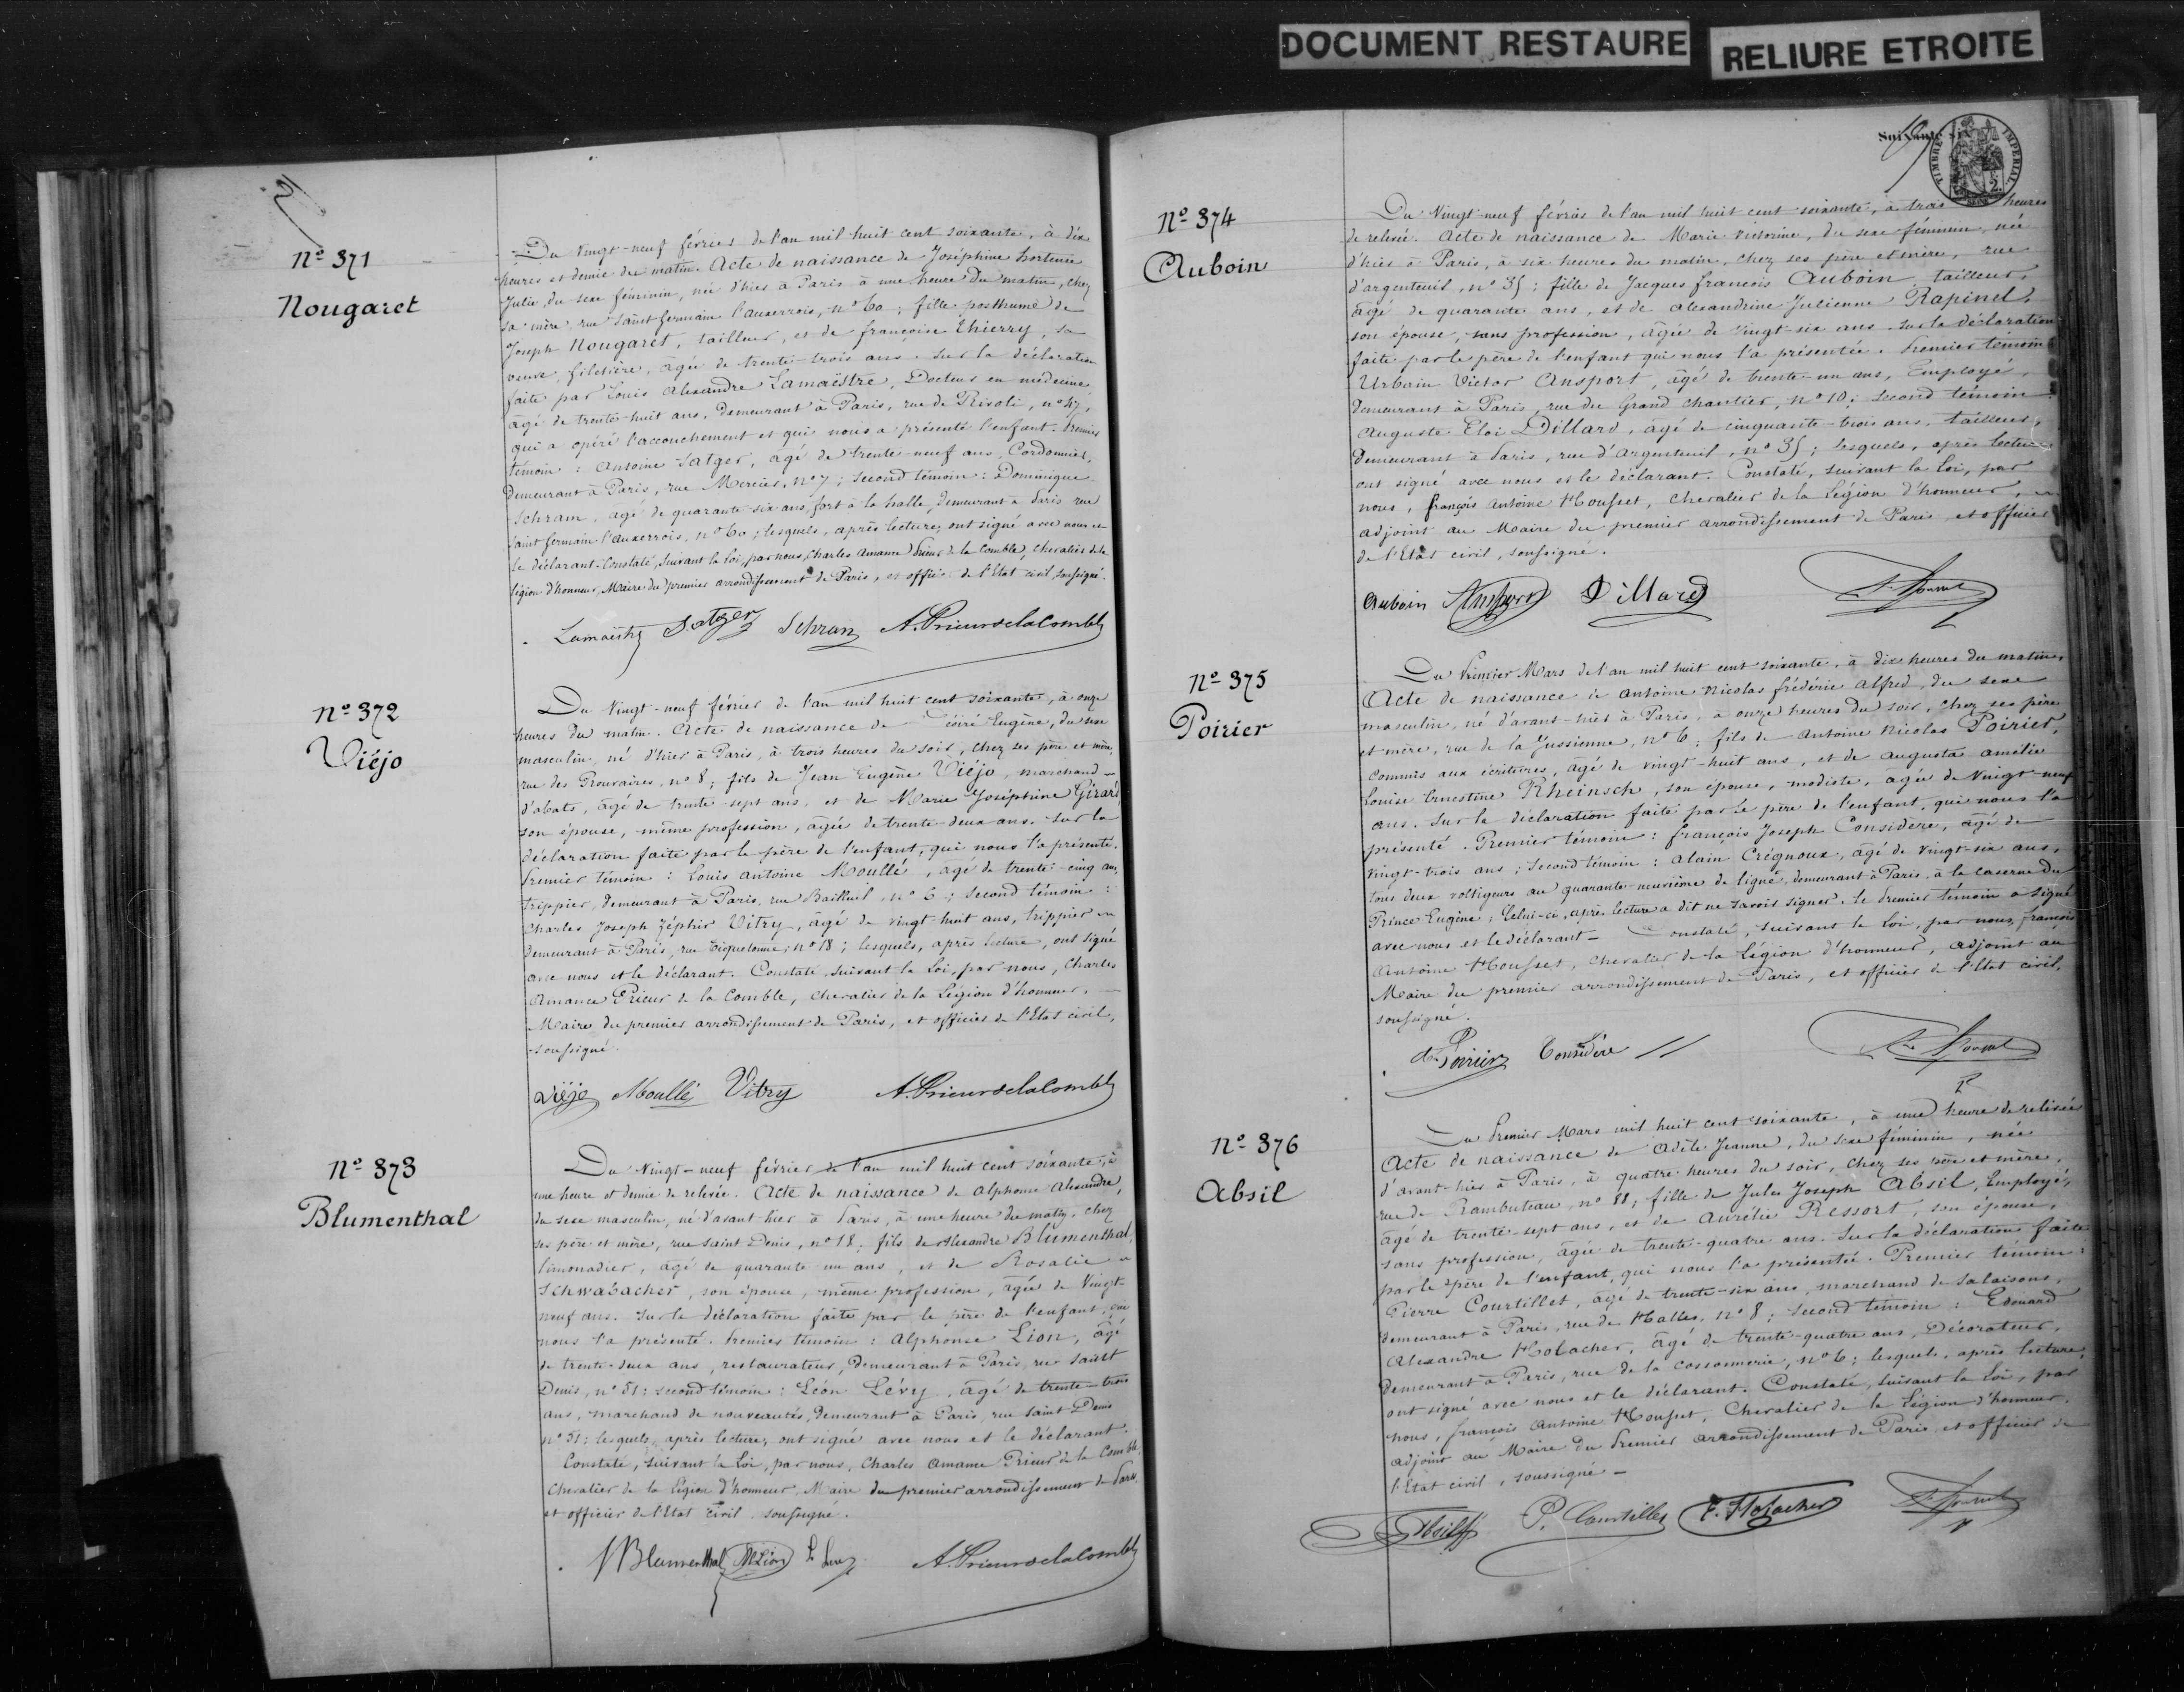 DOCUMENT RESTAURE
RELIURE ETROITE
Nº 371
Nougaret
Du Vingt-neuf février de l'an mil huit cent soixante, à dix
heures et demie du matin. Acte de naissance de Joséphine hortense
Julie, du sexe féminin, née d'hier à Paris à une heure du matin, chez
sa mère, rue Saint germain l'auxerrois, nº 60; fille posthume de
Joseph Nougaret, tailleur, et de françoise Thierry, sa
veuve, giletière, âgée de trente-trois ans. Sur la déclaration
faite par Louis Alexandre Lamaëstre, Docteur en médecine
âgé de trente-huit ans, demeurant à Paris, rue de Rivoli, nº 47,
qui a opéré l'accouchement et qui nous a présenté l'enfant. Premier
témoin: Antoine Satger, âgé de trente-neuf ans, Cordonnier,
demeurant à Paris, rue Mercier, nº 7; Second témoin: Dominique
Schram, âgé de quarante-six ans, fort à la halle, demeurant à Paris rue
Saint germain l'auxerrois, nº 60; lesquels, après lecture, ont signé avec nous et
le déclarant. Constaté, suivant la loi, par nous, Charles Amance Prieur de la Comble, chevalier de la
légion d'honneur, Maire du premier arrondissement de Paris, et officier de l'Etat civil, soussigné.
Lamaëstre Satger Schram A. Prieur de la Comble
Nº 372
Viéjo
Du Vingt-neuf février de l'an mil huit cent soixante, à onze
heures du matin. Acte de naissance de Désiré Eugène, du sexe
masculin, né d'hier à Paris, à trois heures du soir, chez ses père et mère,
rue des Prouvaires, nº 8; fils de Jean Eugène Viéjo, marchand
d'abats, âgé de trente-sept ans, et de Marie Joséphine Girard,
son épouse, même profession, âgée de trente-deux ans. Sur la
déclaration faite par le père de l'enfant, qui nous l'a présenté.
Premier témoin: Louis Antoine Moullé, âgé de trente-cinq ans,
trippier, demeurant à Paris, rue Bailleul, nº 6; Second témoin:
Charles Joseph Zéphir Vitry, âgé de vingt-huit ans, trippier
demeurant à Paris, rue Tiquetonne, nº 18; lesquels, après lecture, ont signé
avec nous et le déclarant. Constaté, suivant la Loi, par nous, Charles
Amance Prieur de la Comble, chevalier de la Légion d'honneur,
Maire du premier arrondissement de Paris, et officier de l'Etat civil,
soussigné.
Viéjo Moullé Vitry A. Prieur de la Comble
Nº 373
Blumenthal
Du Vingt-neuf février de l'an mil huit cent soixante, à
une heure et demie de relevée. Acte de naissance de Alphonse Alexandre,
du sexe masculin, né d'avant-hier à Paris, à une heure du matin, chez
ses père et mère, rue Saint Denis, nº 18; fils de Alexandre Blumenthal,
limonadier, âgé de quarante un ans, et de Rosalie
Schwabacher, son épouse, même profession, âgée de Vingt-
neuf ans. Sur la déclaration faite par le père de l'enfant, qui
nous l'a présenté. Premier témoin: Alphonse Lion, âgé
de trente-deux ans, restaurateur, demeurant à Paris, rue Saint
Denis, nº 51; second témoin: Léon Lévy, âgé de trente-trois
ans, marchand de nouveautés, demeurant à Paris, rue Saint Denis
nº 51; lesquels, après lecture, ont signé avec nous et le déclarant.
Constaté, suivant la Loi, par nous, Charles Amance Prieur de la Comble,
Chevalier de la légion d'honneur, Maire du premier arrondissement de Paris,
et officier de l'Etat civil, soussigné.
Blumenthal A Lion L. Levy A. Prieur de la Comble
Soixante six
TIMBRE IMPERIAL
Nº 374
Auboin
Du Vingt-neuf février de l'an mil huit cent soixante, à trois heures
de relevée. Acte de naissance de Marie Victorine, du sexe féminin, née
d'hier à Paris, à six heures du matin, chez ses père et mère, rue
d'argenteuil, nº 35; fille de Jacques françois Auboin, tailleur,
âgé de quarante ans, et de Alexandrine Julienne Rapinel,
son épouse, sans profession, âgée de vingt-six ans. Sur la déclaration
faite par le père de l'enfant qui nous l'a présentée. Premier témoin
Urbain Victor Ansport, âgé de trente-un ans, Employé,
demeurant à Paris, rue du Grand chantier, nº 10; Second témoin:
Auguste Eloi Dillard, âgé de cinquante-trois ans, tailleur,
demeurant à Paris, rue d'argenteuil, nº 35; lesquels, après lecture
ont signé avec nous et le déclarant. Constaté, suivant la Loi, par
nous, françois Antoine Housset, chevalier de la Légion d'honneur,
adjoint au Maire du premier arrondissement de Paris, et officier
de l'Etat civil, soussigné.
Auboin Ansport Dillard
Nº 375
Poirier
Du Premier Mars de l'an mil huit cent soixante, à dix heures du matin,
Acte de naissance de Antoine Nicolas frédéric Alfred, du sexe
masculin, né d'avant-hier à Paris, à onze heures du soir, chez ses père
et mère, rue de la Jussienne, nº 6; fils de Antoine Nicolas Poirier,
commis aux écritures, âgé de vingt-huit ans, et de Augusta Amélie
Louise Ernestine Rheinsch, son épouse, modiste, âgée de Vingt-neuf
ans. Sur la déclaration faite par le père de l'enfant, qui nous l'a
présenté. Premier témoin: françois Joseph Considère, âgé de
vingt-trois ans; Second témoin: Alain Crégnoux, âgé de vingt-six ans,
tous deux voltigeurs au quarante-neuvième de ligne, demeurant à Paris, à la caserne du
Prince Eugène; Celui-ci, après lecture a dit ne savoir signer, le Premier témoin a signé
avec nous et le déclarant. Constaté, suivant la Loi, par nous, françois
Antoine Housset, chevalier de la Légion d'honneur, adjoint au
Maire du premier arrondissement de Paris, et officier de l'Etat civil,
soussigné.
Poirier Considère
Nº 376
Absil
Du Premier Mars mil huit cent soixante, à une heure de relevée
Acte de naissance de Adèle Jeanne, du sexe féminin, née
d'avant-hier à Paris, à quatre heures du soir, chez ses père et mère,
rue de Rambuteau, nº 88; fille de Jules Joseph Absil, Employé,
âgé de trente-sept ans, et de Aurélie Ressort, son épouse,
sans profession, âgée de trente-quatre ans. Sur la déclaration faite
par le père de l'enfant, qui nous l'a présentée. Premier témoin:
Pierre Courtillet, âgé de trente-six ans, marchand de salaisons,
demeurant à Paris, rue des Halles, nº 8; Second témoin: Edouard
Alexandre Holacher, âgé de trente-quatre ans, Décorateur,
demeurant à Paris, rue de la cossonnerie, nº 6; lesquels, après lecture,
ont signé avec nous et le déclarant. Constaté, suivant la Loi, par
nous, françois Antoine Housset, Chevalier de la Légion d'honneur,
adjoint au Maire du Premier arrondissement de Paris, et officier de
l'Etat civil, soussigné
Absil P. Courtillet E. Holacher